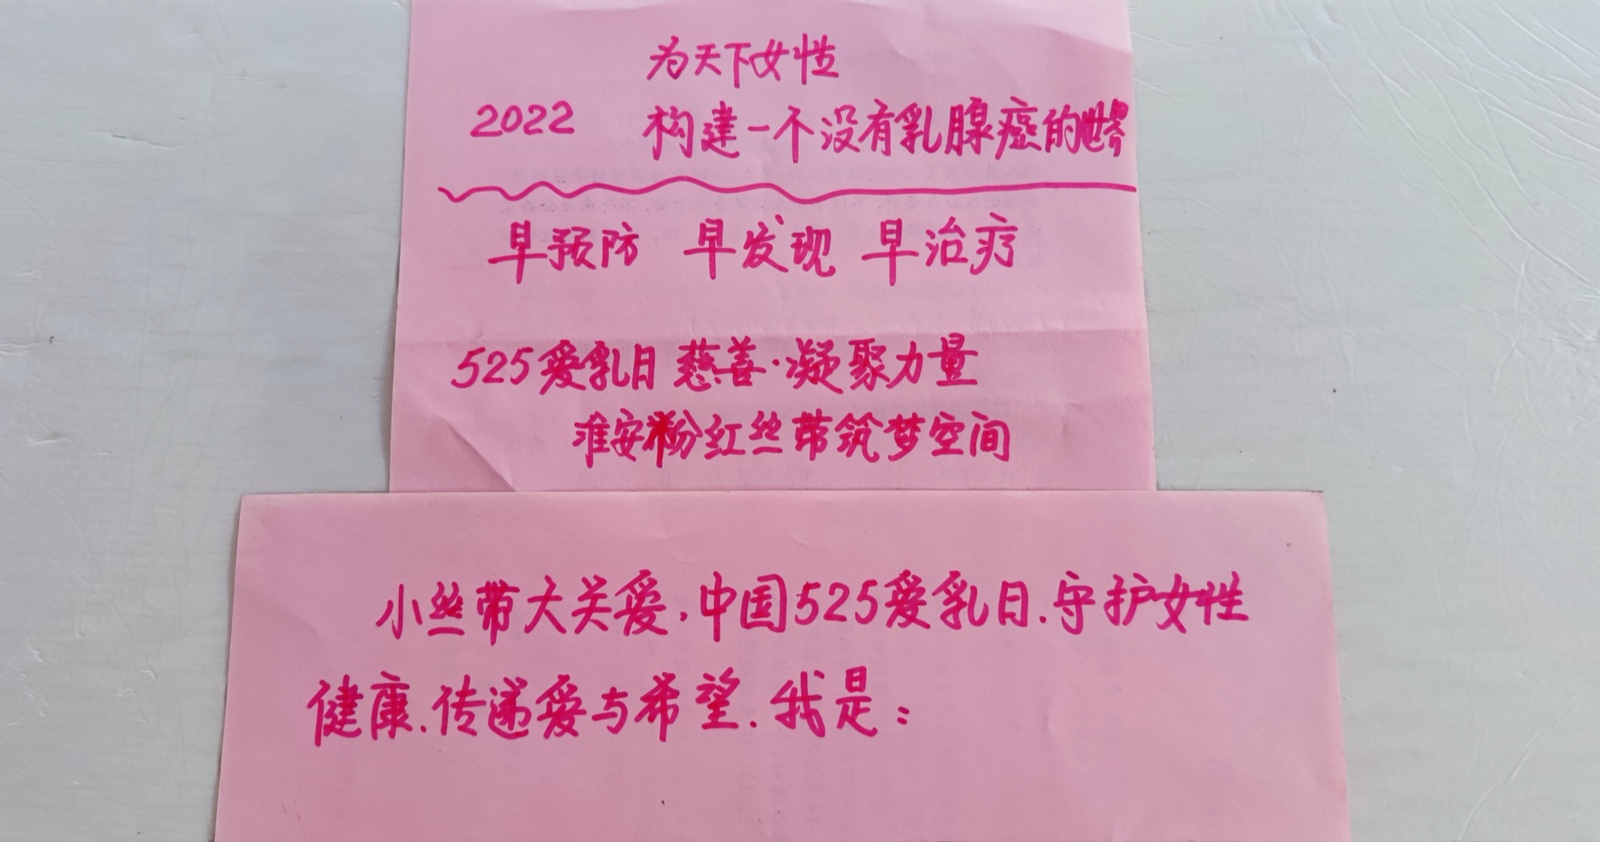 为天下女性
2022 构建一个没有乳腺癌的世界
早预防 早发现 早治疗
525爱乳日 慈善·凝聚力量
淮安粉红丝带筑梦空间
小丝带大关爱,中国525爱乳日.守护女性
健康.传递爱与希望.我是: